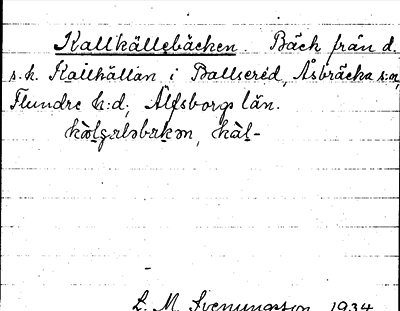 Kallkällebäcken. Bäck från d.
s.k. Kallkällan i Ballsered, Åsbräcka s:n,
Flundre h:d, Älfsborgs län.
kàl-
L. M. Svenungsson 1934